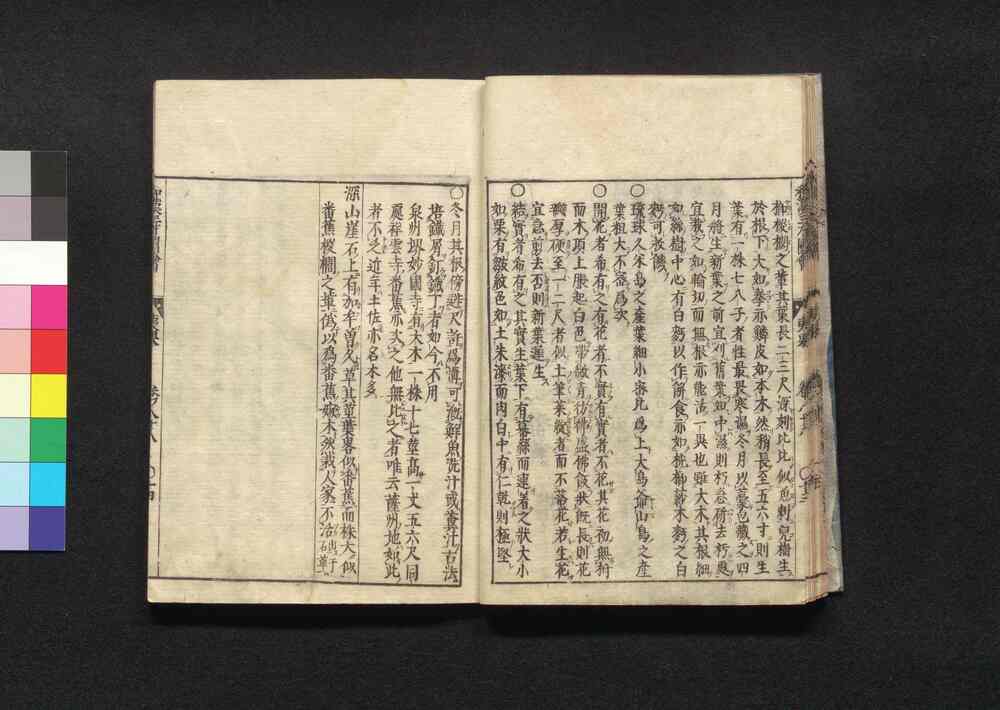 椶櫚之葉其葉長二三尺深刻比比似魚刺兒樹生
於根下大如拳亦鱗皮如本木然稍長至五六寸則生
葉有一株七八子者性最畏寒濕冬月以藁包藏之四
月將生新葉之前宜刈舊葉如中濕則朽急斫去朽處
宜栽之如輪切而無根亦能活一異也雖大木其根細
如絲樹中心有白麪以作餅食亦如桄榔莎木麪之白
麪可救饑
琉球人米島之産葉細小密比爲上大島釜山島之産
葉粗大不密爲次
開花者希有之有花者不實有實者不花其花初無狩
而木頂上脹起白色帶微青彷彿盛佛飯狀既長則花
瓣厚硬至一二尺者似土筆菜從者而不落花若生花
宜急剪去否則新葉難生
結實者希有之其實生葉下有蕃蘇而連著之狀大小
如栗有皺紋色如土朱漆而肉白中有仁乾則極堅
冬月其根傍避尺許爲溝可漑鮮魚洗汁或糞汁古法
培鐵屑釘鐵丁者如今不用
泉州堺妙國寺有大木一株十七莖高一丈五六尺同
處祥雲寺番蕉亦次之他無比之者唯云薩州地如此
者不乏近年土佐亦名木多
深山崖石上有加牟曽久草其莖葉畧似番蕉而株大似
番蕉椶櫚之輩僞以爲番蕉婉木然栽人家不活